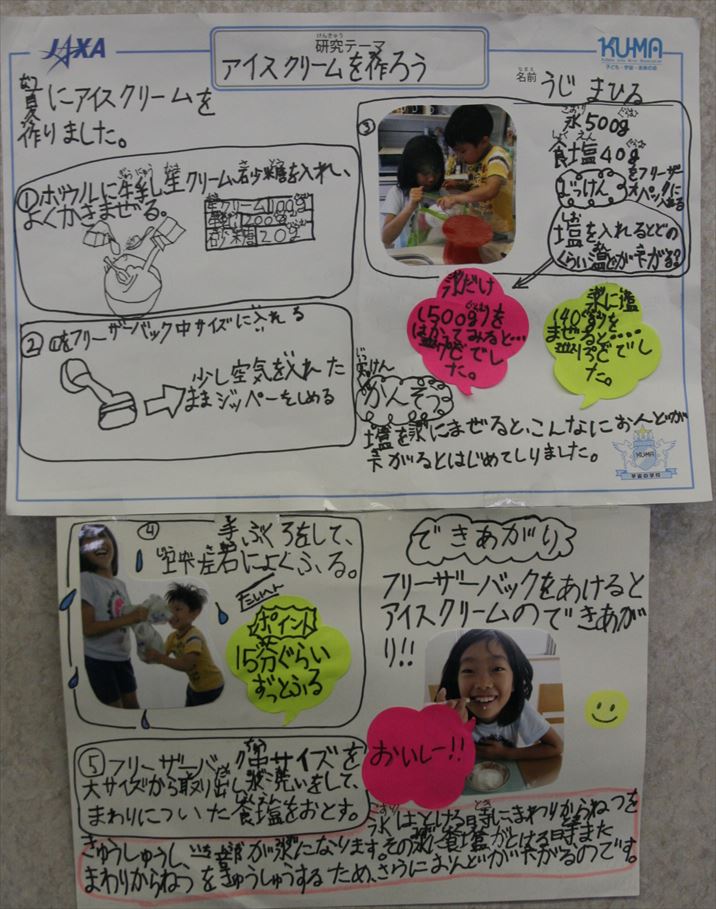 JAXA
研究テーマ
けんきゅう
アイスクリームを作ろう
KU-MA
子ども・宇宙・未来の会
名前 うじ まひる
なまえ
夏にアイスクリームを
作りました。
①ボウルに牛乳、生クリーム、砂糖を入れ、
よくかきまぜる。
生クリーム100g
200g
砂糖20g
②①をフリーザーバック中サイズに入れる
少し空気を入れた
ままジッパーをしめる
③
氷500g
食塩40g
をフリーザー
バックに
入れる
じっけん
塩を入れるとどの
くらい温どが下がる?
氷だけ
(500g)を
はかってみると…
でし
た。
氷に塩
(40g)を
まぜると……
でし
た。
じっけん
かんそう
塩を氷にまぜると、こんなにおんどが
下がるとはじめてしりました。
KU-MA
宇宙の学校
④
手ぶくろをして、
上下左右によくふる。
ポイント
15分ぐらい
ずっとふる
できあがり
フリーザーバックをあけると
アイスクリームのできあが
り!!
おいしー!!
⑤フリーザーバック中サイズを
大サイズから取り出し、水洗いをして、
まわりについた食塩をおとす。
氷はとける時にまわりからねつを
きゅうしゅうし、いち部が水になります。その水に食塩がとける時また
まわりからねつをきゅうしゅうするため、さらにおんどが下がるのです。